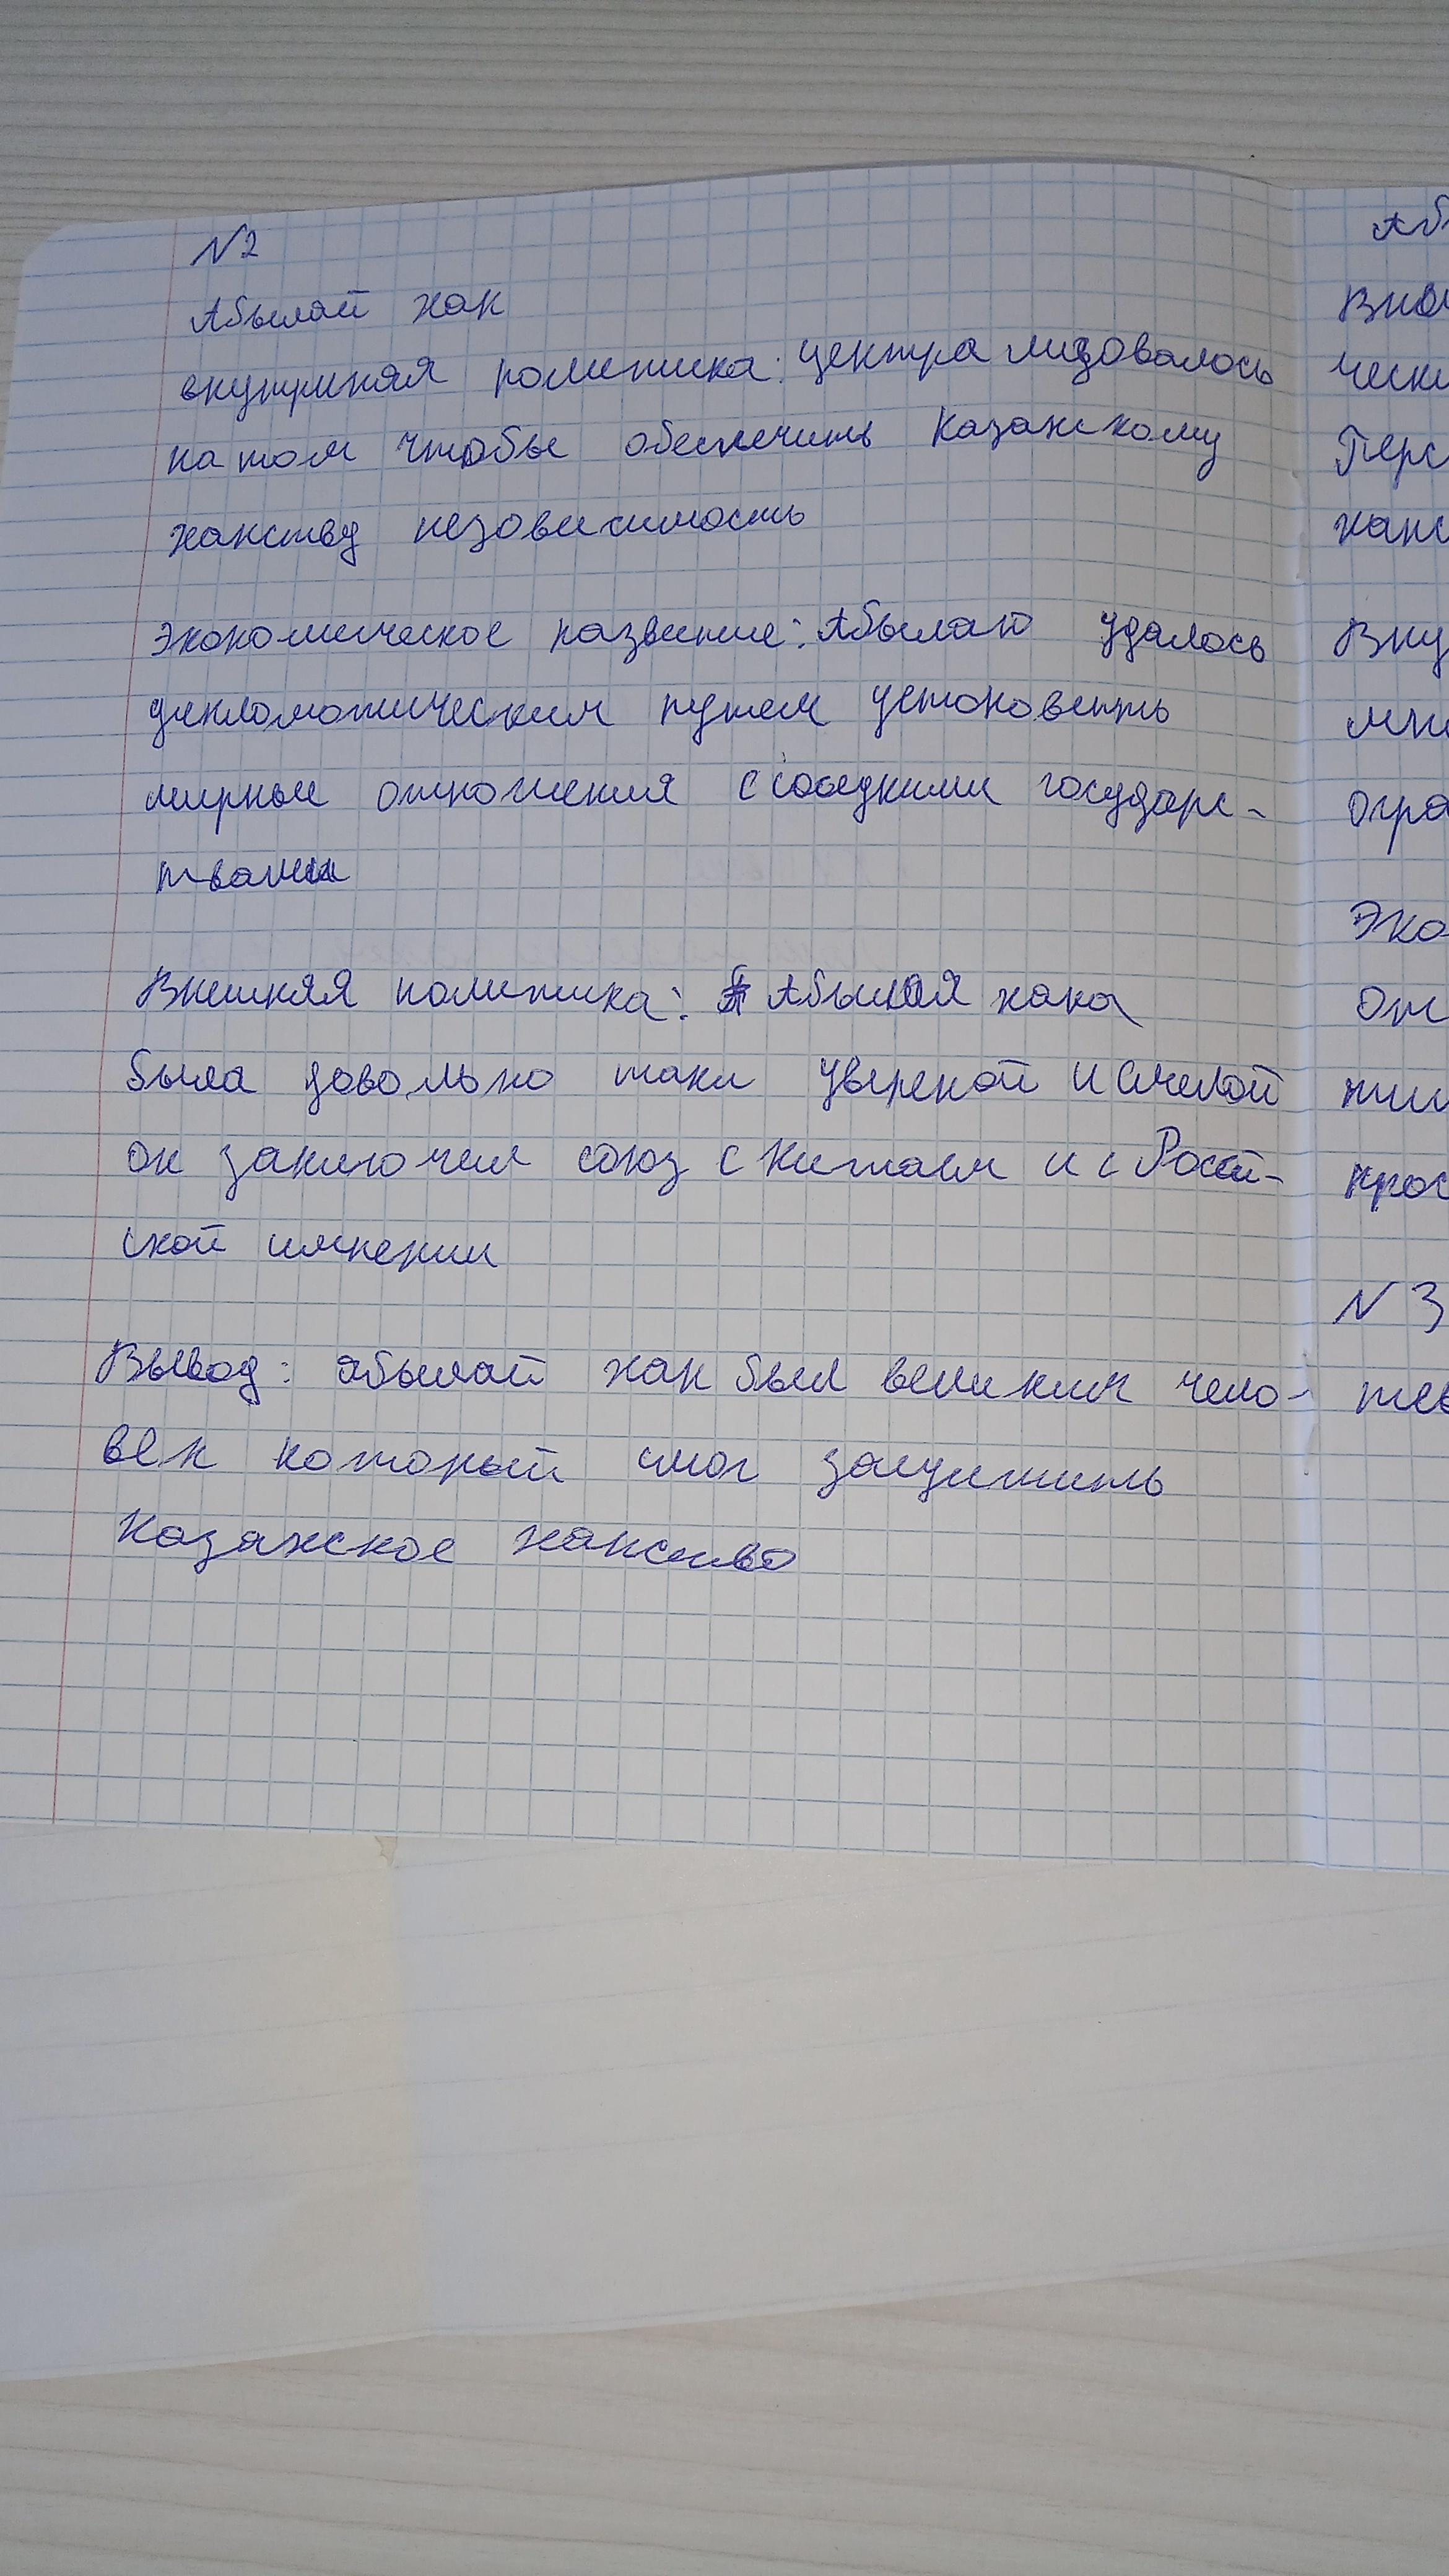 N2
Абылай хан
внутрняя политика: централизовалось
на том чтобы обеспечить Казахскому
ханству незовисимость
экономическое развитие: Абылаю удалось
дипломотическим путем устоновить
мирные отношения с соседними государс-
твами
Внешняя политика: Абылая хана
была довольно таки увереной и смелой
он заключил союз с Китаем и с Россий-
ской империи
Вывод: Абылай хан был великим чело-
век который смог защитить
Казахское ханство
Аб
Вно
чески
Перс
ханс
Вну
мпи
огра
Эко
От
прос
N3